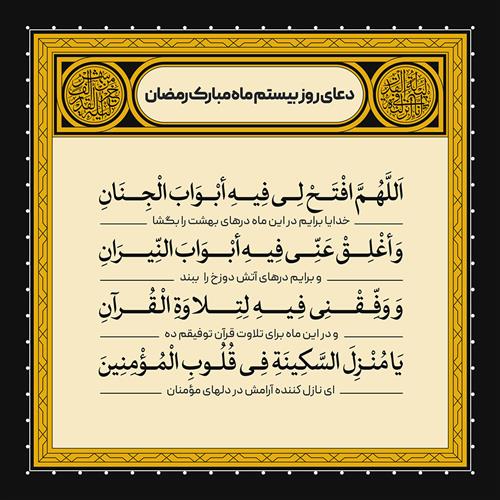 دعای روز بیستم ماه مبارک رمضان
اَللَّهُمَّ افْتَحْ لِی فِیهِ أبْوَابَ الْجِنَانِ
خدایا برایم در این ماه درهای بهشت را بگشا
وَأغْلِقْ عَنِّی فِیهِ أبْوَابَ النِّیرَانِ
و برایم درهای آتش دوزخ را ببند
وَ وَفِّقْنِی فِیهِ لِتِلاوَةِ الْقُرآنِ
و در این ماه برای تلاوت قرآن توفیقم ده
یَا مُنْزِلَ السَّکِینَةِ فِی قُلُوبِ الْمُؤْمِنِینَ
ای نازل کننده آرامش در دلهای مؤمنان